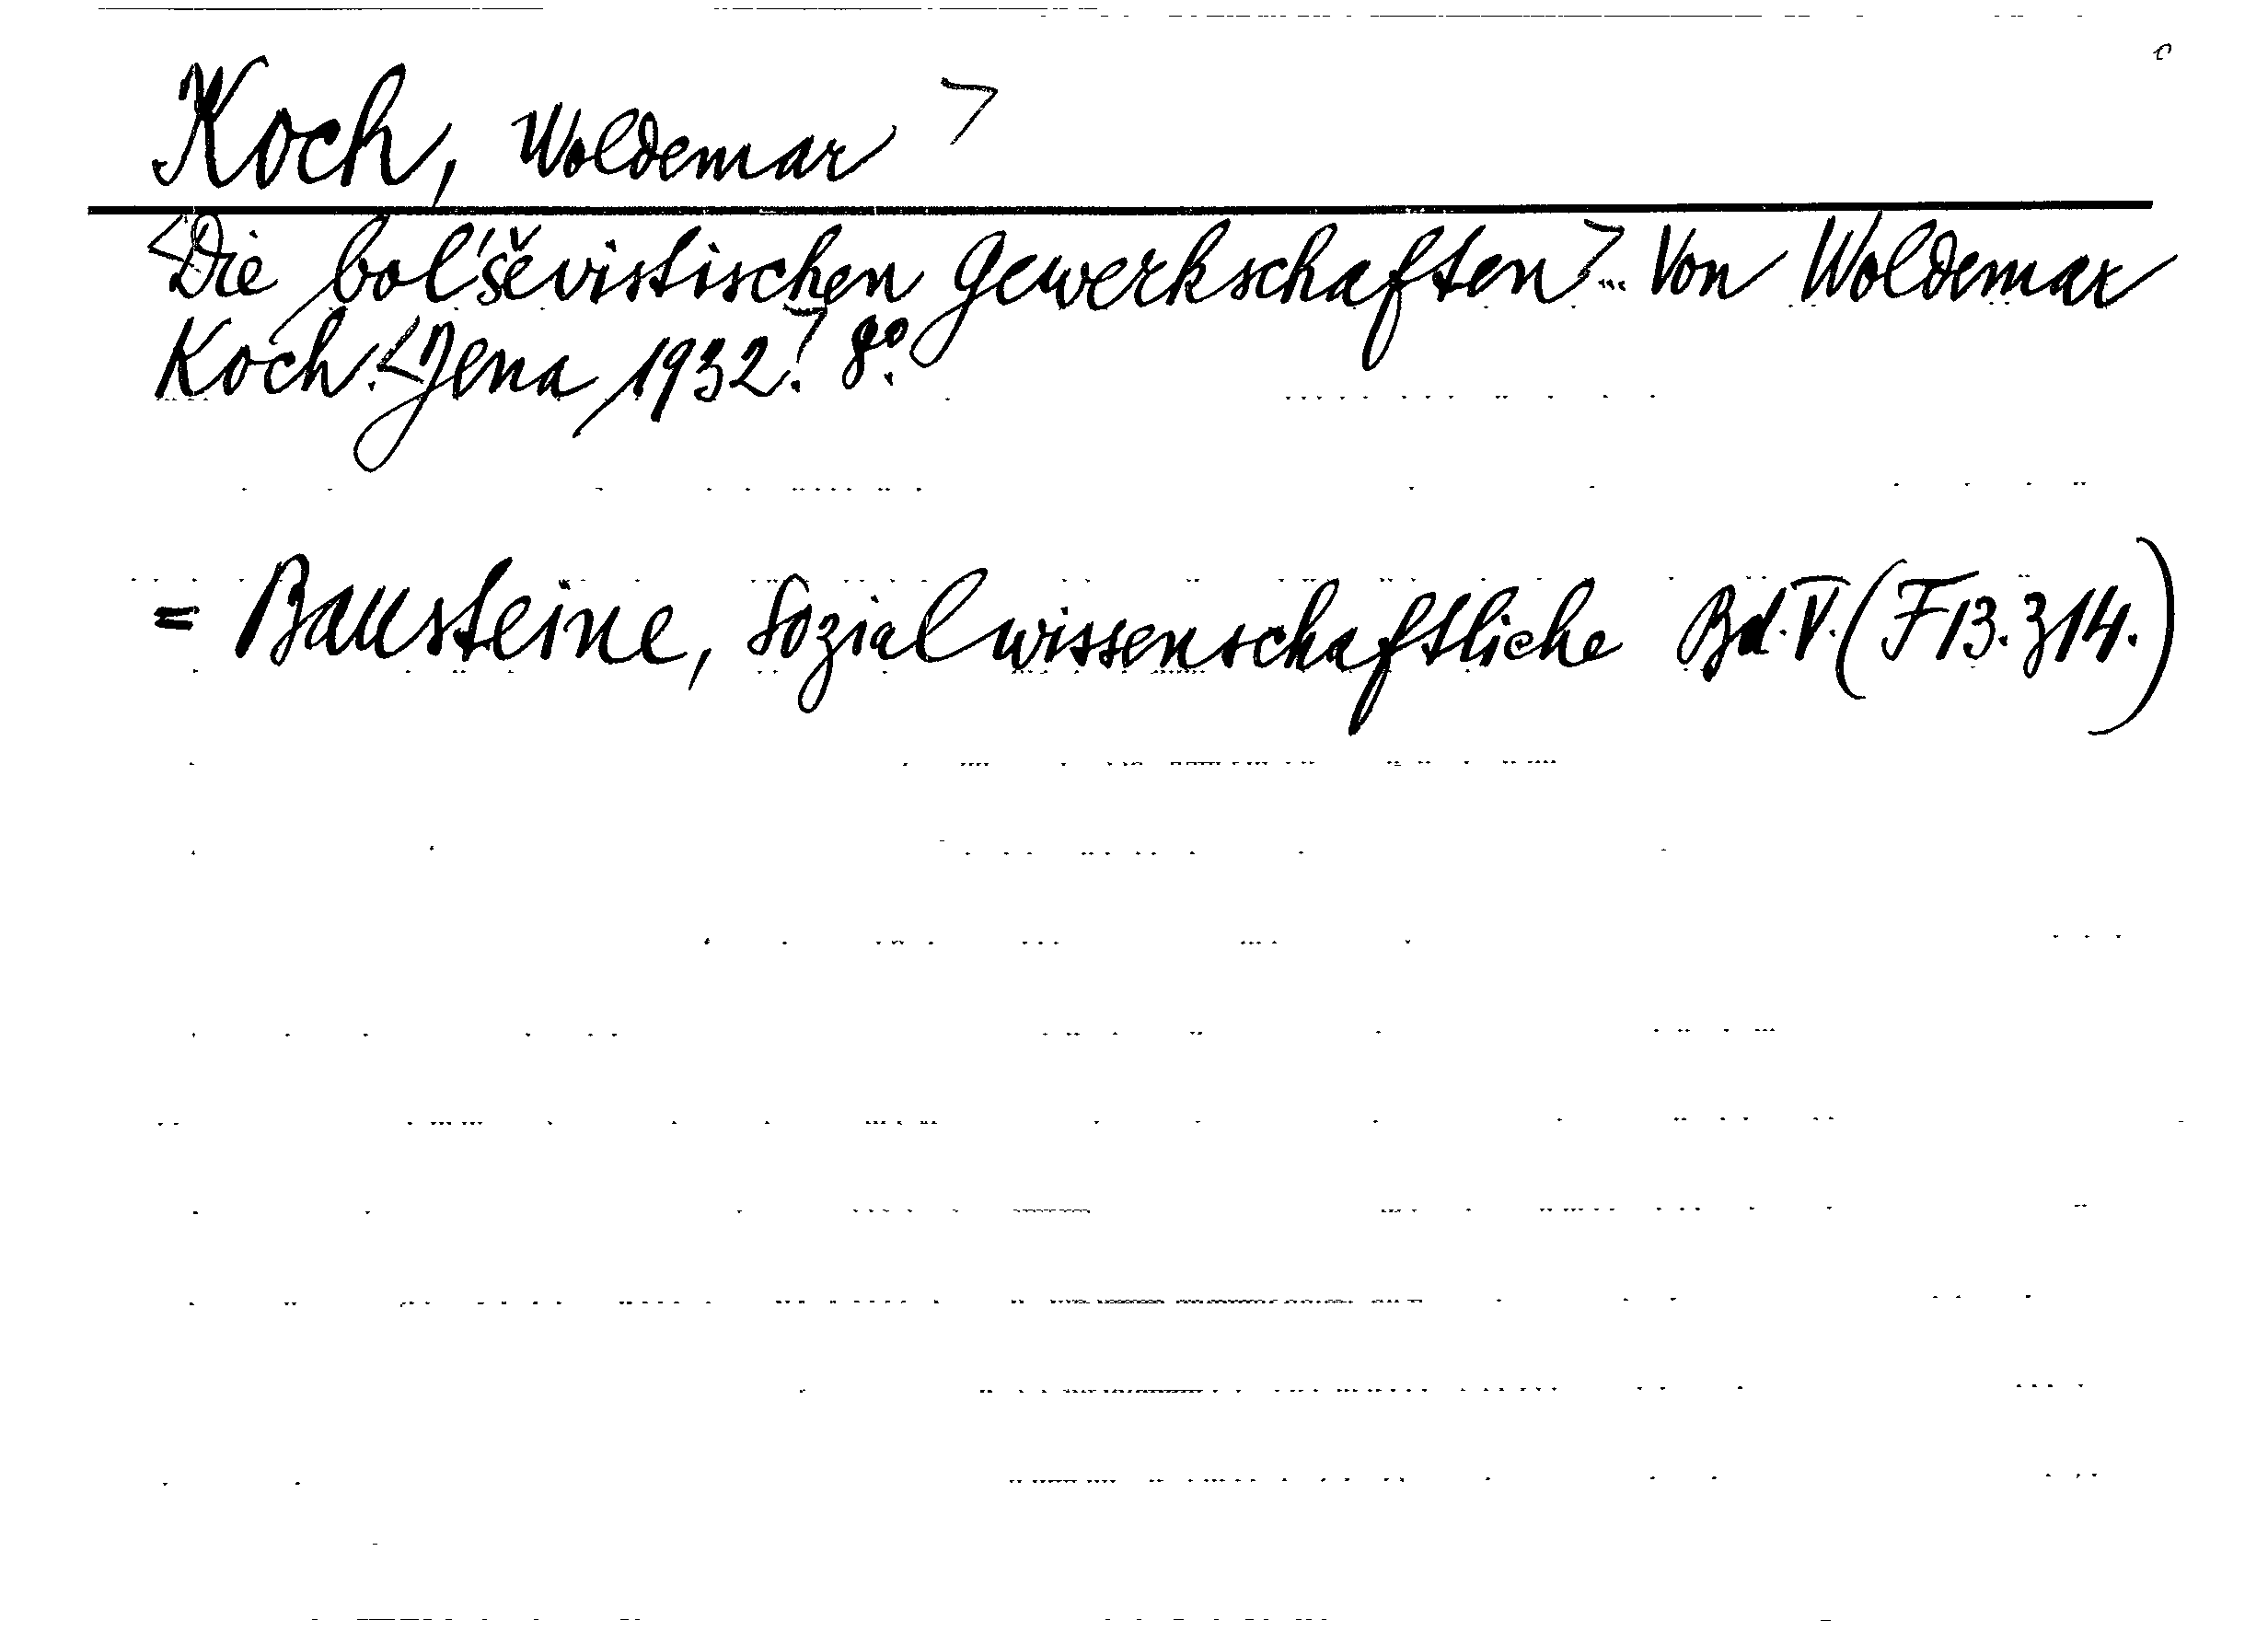 Koch, Woldemar >
<Die bol'ševistischen Gewerkschaften>... Von Woldemar
Koch. <Jena, 1932.> 8°.
= Bausteine, Sozialwissenschaftliche Bd. V. (F 13. 314.)